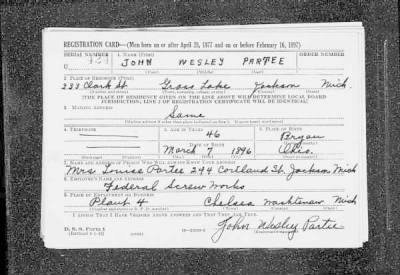 REGISTRATION CARD—(Men born on or after April 28, 1877 and on or before February 16, 1897)
SERIAL NUMBER 1. NAME (Print) ORDER NUMBER
U
JOHN WESLEY PARTEE
2. PLACE OF RESIDENCE (Print)
233 Clark St. Grass Lake Jackson Mich.
[THE PLACE OF RESIDENCE GIVEN ON THE LINE ABOVE WILL DETERMINE LOCAL BOARD
JURISDICTION; LINE 2 OF REGISTRATION CERTIFICATE WILL BE IDENTICAL]
3. MAILING ADDRESS
Same
4. TELEPHONE 5. AGE IN YEARS 6. PLACE OF BIRTH
46 Bryan
DATE OF BIRTH
March 7 1896 Ohio.
7. NAME AND ADDRESS OF PERSON WHO WILL ALWAYS KNOW YOUR ADDRESS
Mrs. Louise Partee 244 Cortland St. Jackson, Mich
8. EMPLOYER'S NAME AND ADDRESS
Federal Screw Works
9. PLACE OF EMPLOYMENT OR BUSINESS
Plant 4 Chelsea Washtenaw Mich
I AFFIRM THAT I HAVE VERIFIED ABOVE ANSWERS AND THAT THEY ARE TRUE.
D. S. S. Form 1
John Wesley Partee